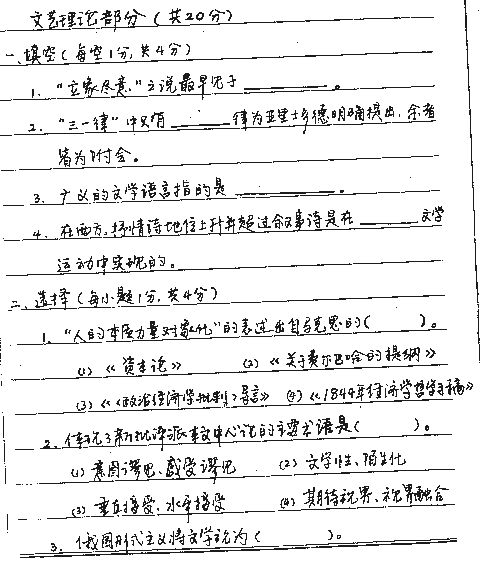 文艺理论部分（共20分）
一、填空（每空1分，共4分）
1、“立象尽意”之说最早见于________。
2、“三一律”中只有______律为亚里士多德明确提出，余者
皆为附会。
3、广义的文学语言指的是________。
4、在西方，抒情诗地位上升并超过叙事诗是在_____文学
运动中实现的。
二、选择（每小题1分，共4分）
1、“人的本质力量对象化”的表述出自马克思的（　　）。
(1)《资本论》　　(2)《关于费尔巴哈的提纲》
(3)《〈政治经济学批判〉导言》　(4)《1844年经济学哲学手稿》
2、体现了新批评派本文中心论的主要术语是（　　）。
(1) 意图谬见、感受谬见　　(2) 文学性、陌生化
(3) 垂直接受、水平接受　　(4) 期待视界、视界融合
3、俄国形式主义将文学视为（　　）。